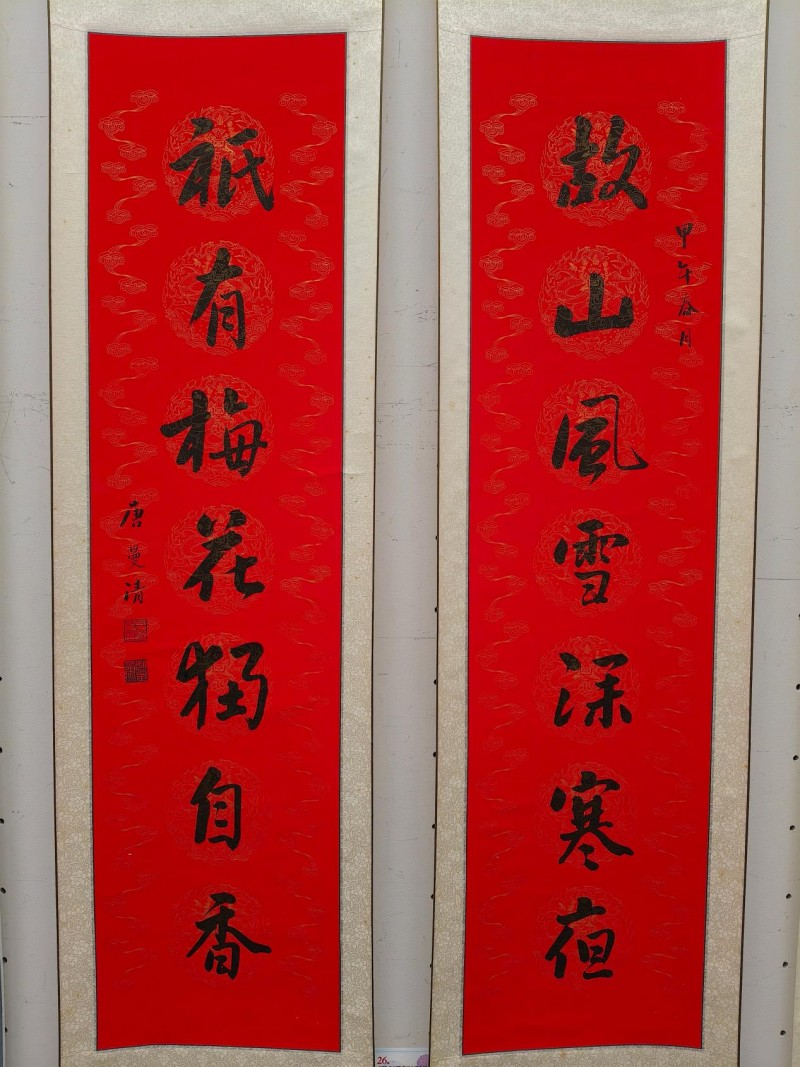 甲午春月
故山風雪深寒夜
祇有梅花獨自香
唐曼清
26